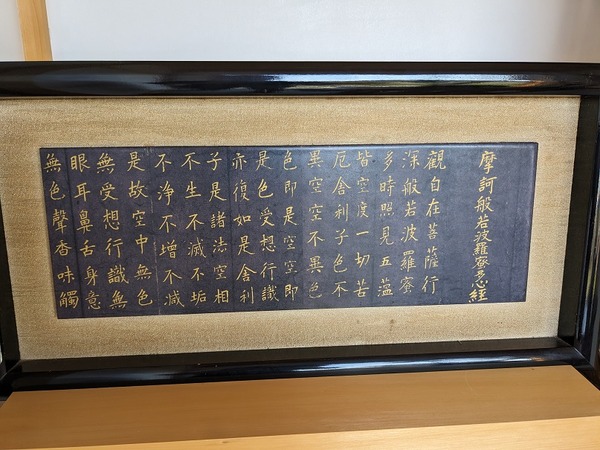 摩訶般若波羅蜜多心經
觀自在菩薩行
深般若波羅蜜
多時照見五蘊
皆空度一切苦
厄舎利子色不
異空空不異色
色即是空空即
是色受想行識
亦復如是舎利
子是諸法空相
不生不滅不垢
不浄不增不減
是故空中無色
無受想行識無
眼耳鼻舌身意
無色聲香味觸